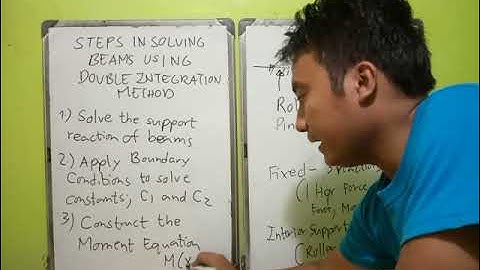 STEPS IN SOLVING
BEAMS USING
DOUBLE INTEGRATION
METHOD
1) Solve the support
reaction of beams
2) Apply Boundary
Conditions to solve
constants; C1 and C2
3) Construct the
Moment Equation
M(x
Fixed-
Interior Support